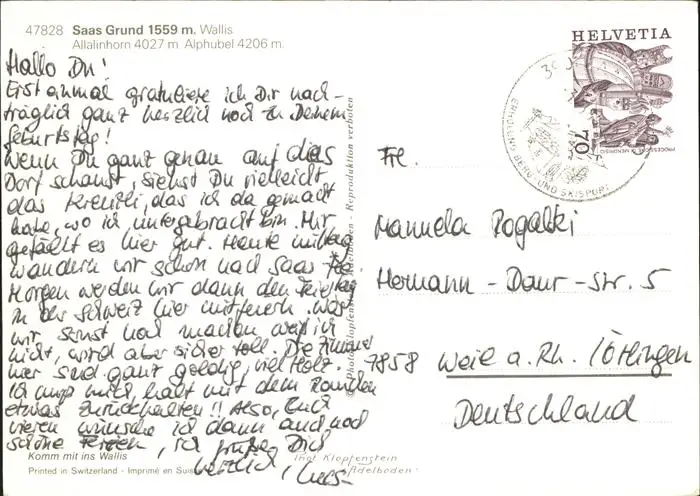 47828 Saas Grund 1559 m. Wallis
Allalinhorn 4027 m Alphubel 4206 m.
Hallo Du!
Erst einmal gratuliere ich Dir nach-
träglich ganz herzlich noch zu Deinem
Geburtstag!
Wenn Du ganz genau auf das
Dorf schaust, siehst Du vielleicht
das Kreuzli, das ich da gemacht
habe, wo ich untergebracht bin. Mir
gefällt es hier gut. Heute mittag
wandern wir schon nach Saas Fee
Morgen werden wir dann den Feiertag
in der Schweiz hier mitfeiern. Was
wir sonst noch machen weiß ich
nicht, wird aber sicher toll. Die Zimmer
hier sind ganz goldig, viel Holz.
Ich muß mich halt mit dem
etwas zurückhalten!! Also, Euch
vieren wünsche ich dann auch noch
schöne Ferien, ich grüße Dich
herzlich,
Komm mit ins Wallis
Printed in Switzerland - Imprimé en Suisse
Phot. Klopfenstein
Adelboden
Adelboden - Reproduktion verboten
HELVETIA
70
PROCESSIONE A MENDRISIO
BERG- UND SKISPORT
Frl.
Manuela Rogalski
Hermann - Daur - Str. 5
7858 Weil a. Rh. (Ötlingen
Deutschland